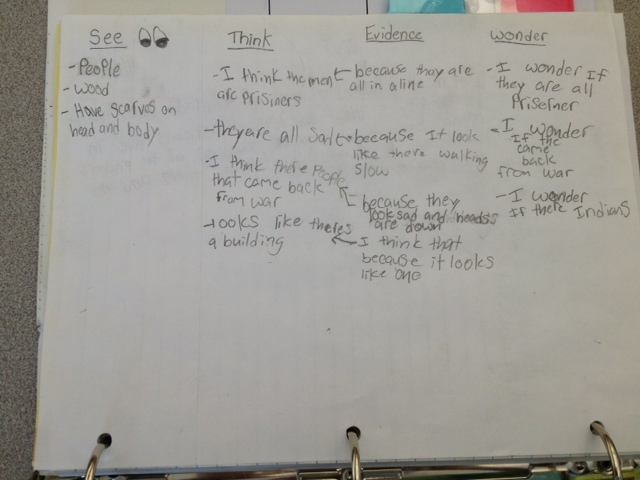 See
-People
-wood
-Have scarves on
head and body
Think
-I think the ment
are prisiners
-they are all sad
-I think there People
that came back
from war
-looks like theres
a building
Evidence
because thay are
all in a line
-because It look
like there walking
slow
because they
look sad and heads
are down
I think that
because it looks
like one
wonder
-I wonder If
they are all
Prisemer
-I wonder
If the
came
back
from war
-I wonder
If there Indians